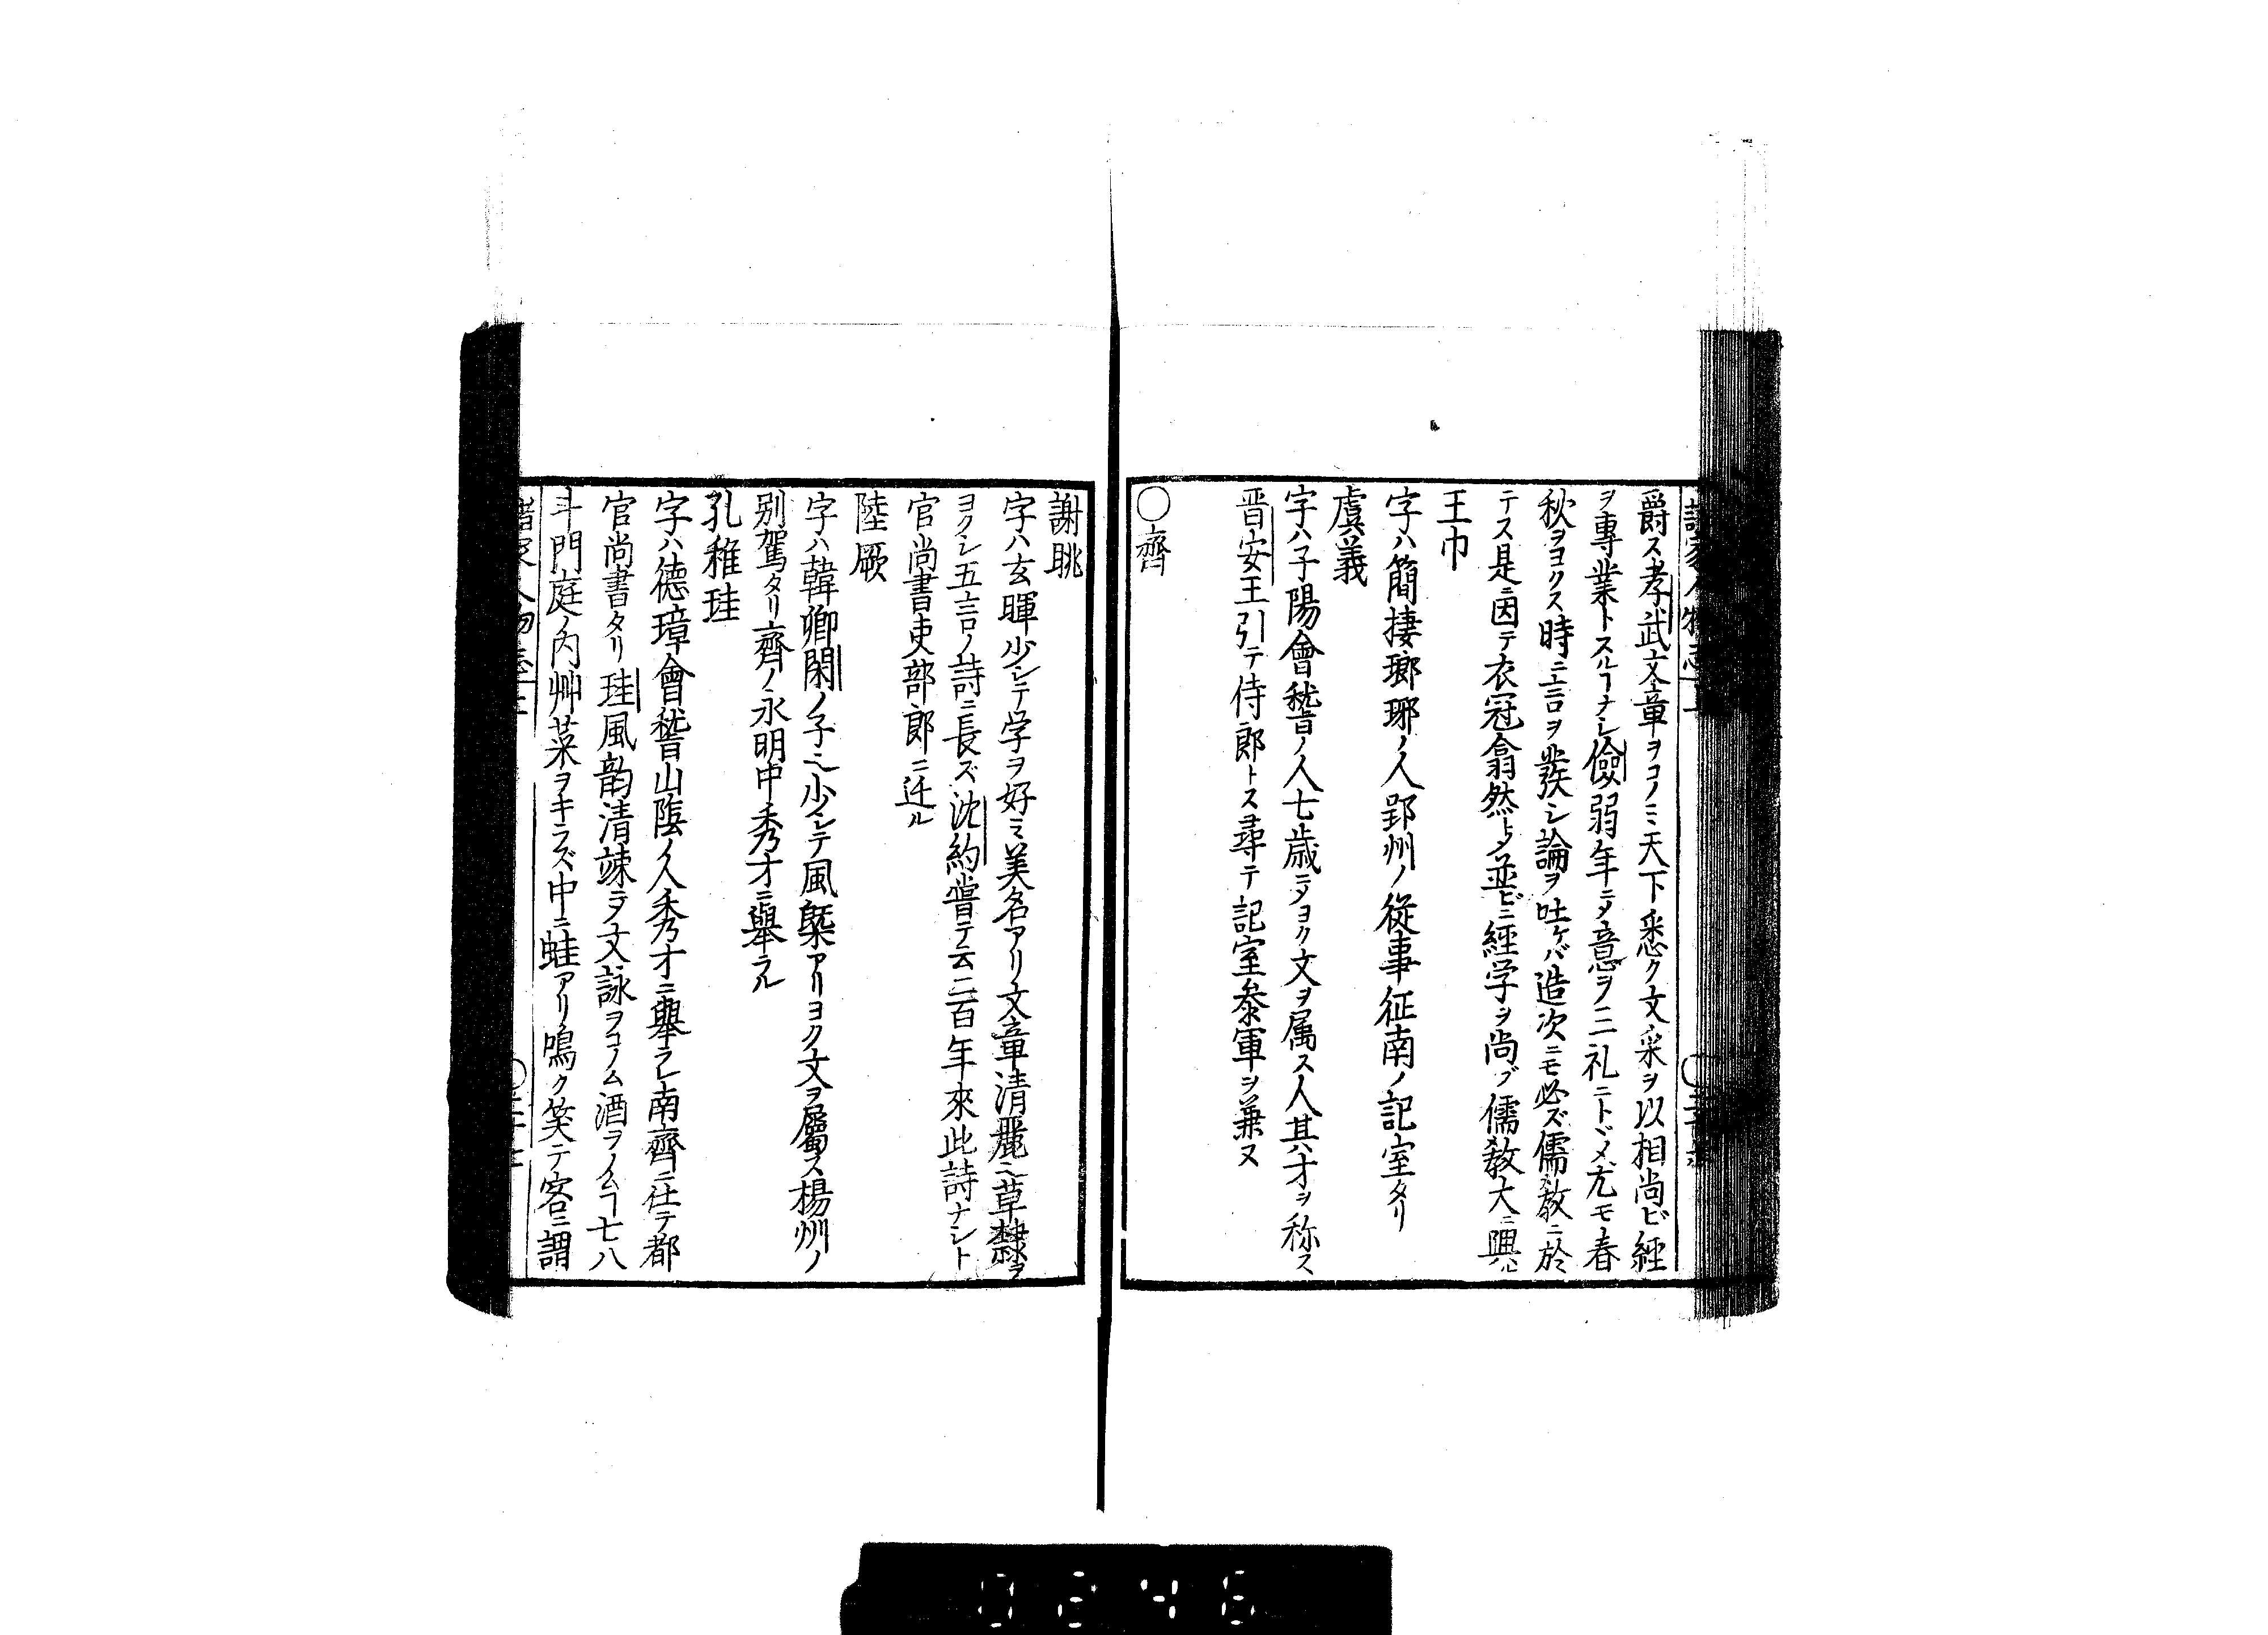 爵ス孝武文章ヲコノミ天下悉ク文采ヲ以相尚ビ經
ヲ專業トスルヿナシ儉弱年ニメ意ヲ三礼ニトドメ尤モ春
秋ヲヨクス時ニ言ヲ發シ論ヲ吐ケバ造次ニモ必ズ儒教ニ於
テス是ニ因テ衣冠翕然トメ並ビニ經学ヲ尚ブ儒教大ニ興ル
王巾
字ハ簡棲瑯琊ノ人郢州ノ從事征南ノ記室タリ
虞義
字ハ子陽會稽ノ人七歳ニメヨク文ヲ属ス人其才ヲ称ス
晋安王引テ侍郎トス尋テ記室参軍ヲ兼ヌ
〇齊
謝眺
字ハ玄暉少シテ学ヲ好ミ美名アリ文章清麗ニ草隸ヲ
ヨクシ五言ノ詩ニ長ズ沈約嘗テ云二百年來此詩ナシト
官尚書吏部郎ニ迁ル
陸厥
字ハ韓卿閑ノ子ニ少シテ風槩アリヨク文ヲ屬ス楊州ノ
別駕タリ齊ノ永明中秀才ニ舉ラル
孔稚珪
字ハ德璋會稽山陰ノ人秀才ニ舉ラレ南齊ニ仕テ都
官尚書タリ珪風韵清竦ニメ文詠ヲコノム酒ヲノムヿ七八
斗門庭ノ内艸莱ヲキラズ中ニ蛙アリ鳴ク笑テ客ニ謂
0246